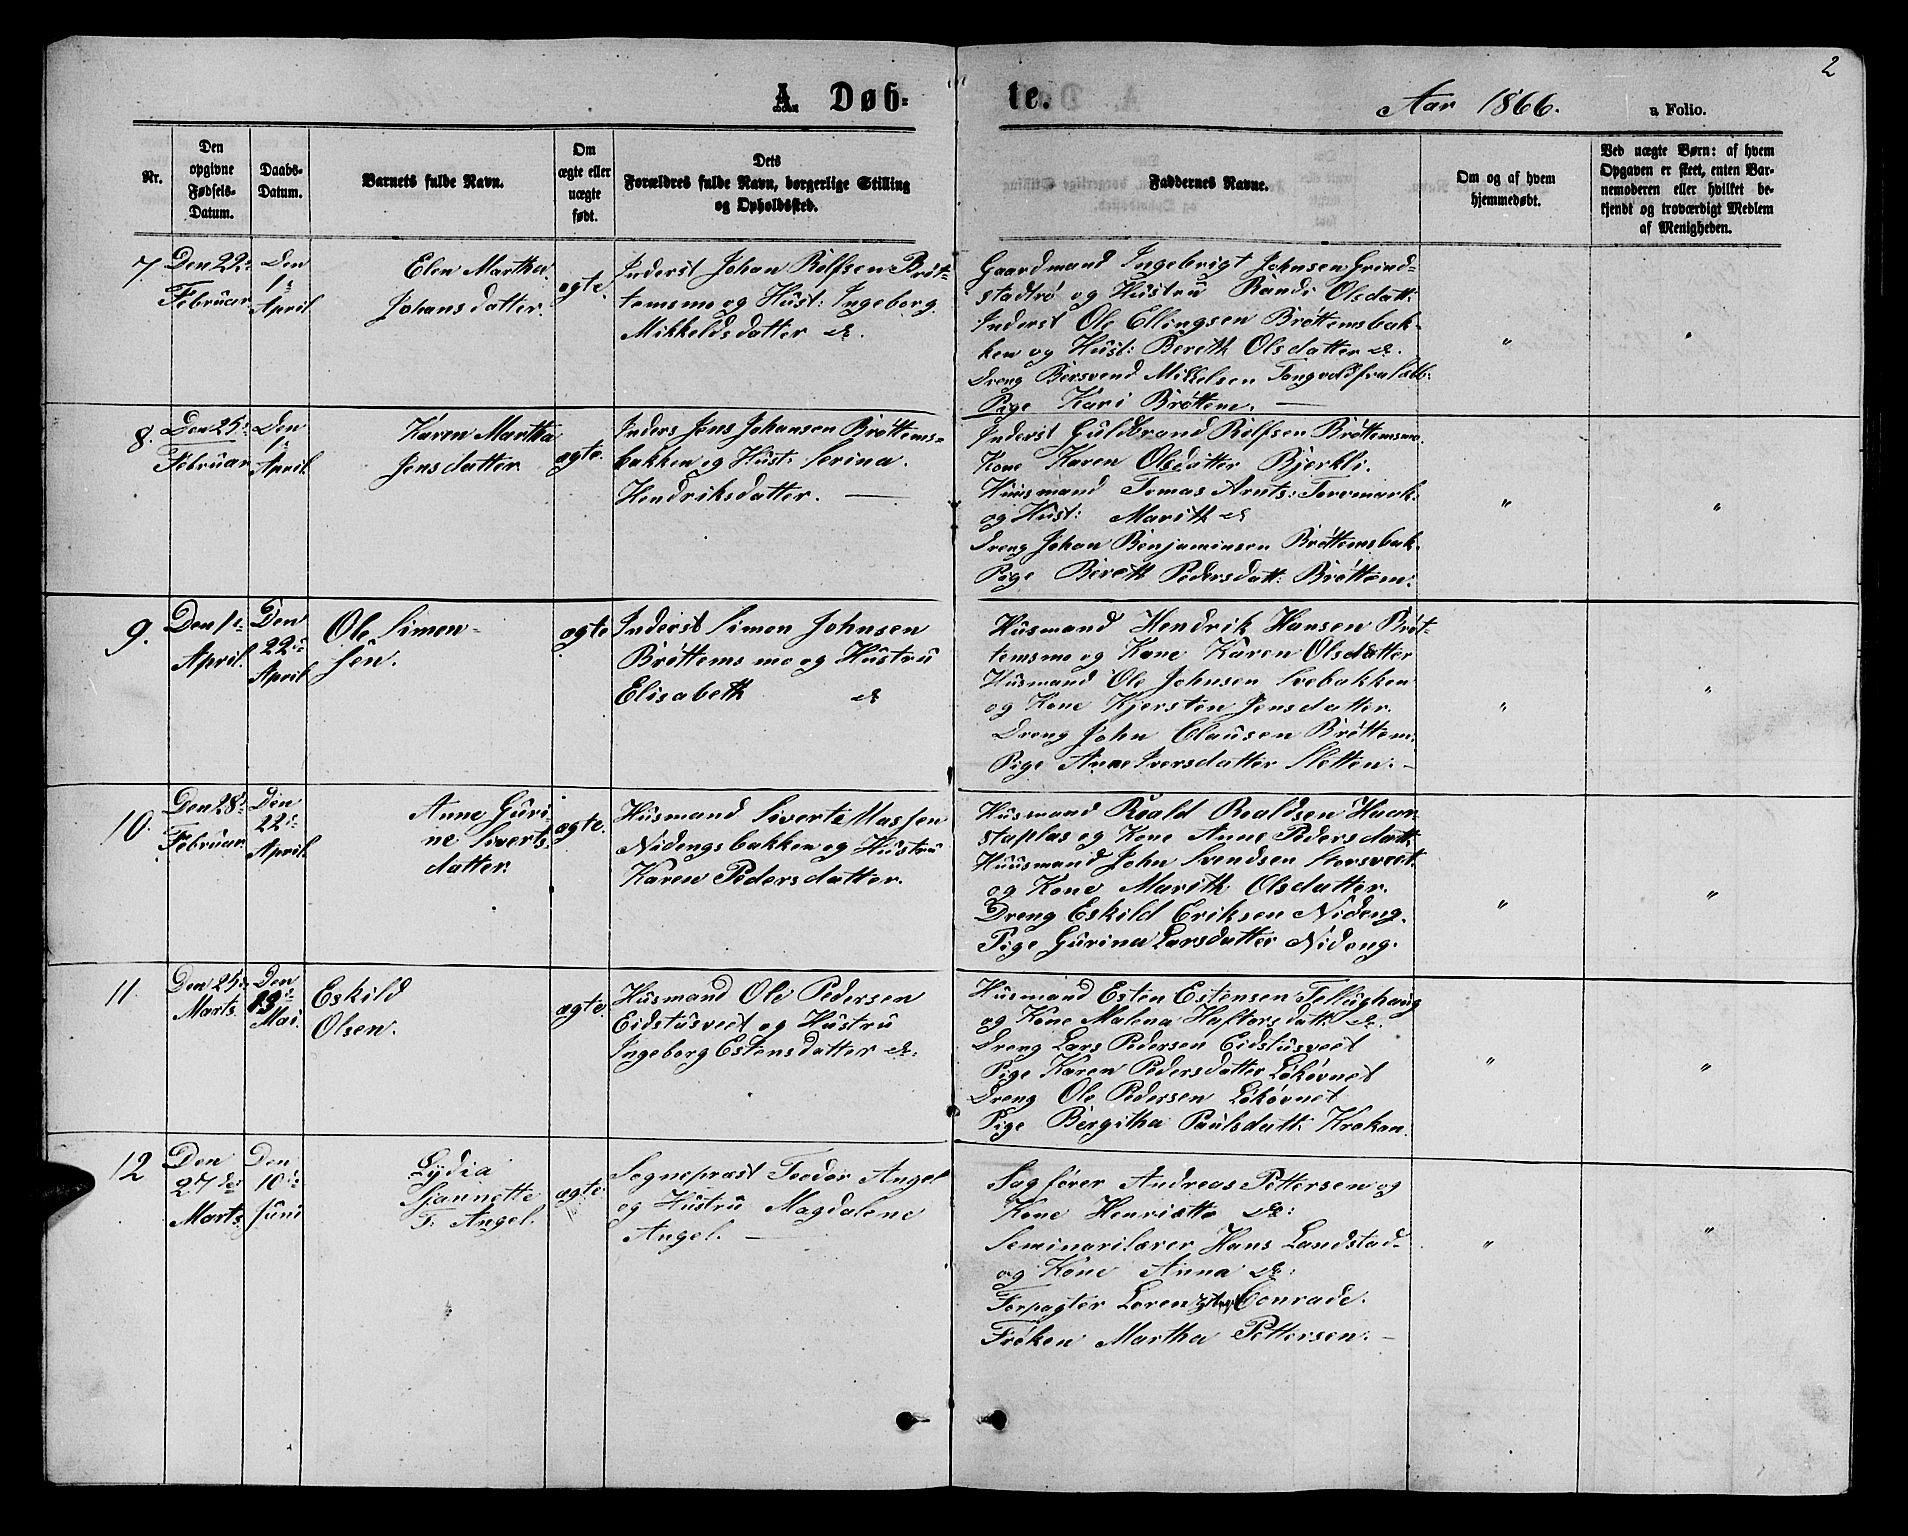 2
A. Døb-
te.
Aar 1866.
a Folio.
Nr.
Den
opgivne
Fødsels-
Datum.
Daabs-
Datum.
Barnets fulde Navn.
Om
ægte eller
uægte
født.
Dets
Forældres fulde Navn, borgerlige Stilling
og Opholdssted.
Faddernes Navne.
Om og af hvem
hjemmedøbt.
Ved uægte Børn: af hvem
Opgaven er skeet, enten Bar-
nemoderen eller hvilket be-
kjendt og troværdigt Medlem
af Menigheden.
7.
Den 22de
Februar
Den
1ste
April
Elen Martha
Johansdatter.
ægte.
Inderst Johan Rolfsen Brøt-
temsmo og Hust: Ingeborg
Mikkelsdatter
Gaardmand Ingebrigt Johnsen Grind-
stadtrø og Hustru Randi Olsdatt:
Inderst Ole Ellingsen Brøttemsbak-
ken og Hust: Bereth Olsdatter
Dreng Bersvend Mikkelsen
Pige Kari Brøttem. —
"
"
8.
Den 25de
Februar
Den
1ste
April
Karen Martha
Jensdatter
ægte.
Inders Jens Johansen Brøttems-
bakken og Hust: Serina
Hendriksdatter. —
Inderst Guldbrand Rolfsen Brøttemsmo.
Kone Karen Olsdatter Bjerkli.
Huusmand Tomas Arnts: Toremark.
og Hust: Marith
Dreng Johan Benjaminsen Brøttemsbak-
Pige Bereth Pedersdatt: Brøttem.
"
"
9.
Den 1ste
April.
Den
22de
April
Ole Simon-
sen.
ægte
Inderst Simon Johnsen
Brøttemsmo og Hustru
Elisabeth
Husmand Hendrik Hansen Brøt-
temsmo og Kone Karen Olsdatter
Husmand Ole Johnsen Svebakken
og Kone Kjersten Jensdatter.
Dreng John Clausen Brøttem.
Pige Anne Iversdatter Sletten. -
"
"
10.
Den 28de
Februar
Den
22de
April
Anne Guri-
ne Siverts
datter.
ægte.
Husmand Siverte Massen
Nidengsbakken og Hustru
Karen Pedersdatter.
Husmand Roald Roaldsen Haar-
staplas og Kone Anne Pedersdatt.
Huusmand John Svendsen Storsveet
og Kone Marith Olsdatter.
Dreng Eskild Eriksen Nideng.
Pige Gurina Larsdatter Nideng.
"
"
11.
Den 25de
Marts.
Den
13de
Mai.
Eskild
Olsen.
ægte.
Husmand Ole Pedersen
Eidstusveet og Hustru
Ingeborg Estensdatter
Husmand Esten Estensen Tellughaug
og Kone Malena Haftorsdatt:
Dreng Lars Pedersen Eidstusveet
Pige Karen Pedersdatter Løkøvnet
Dreng Ole Pedersen Løkøvnet
Pige Bergitha Paulsdatt: Krokan.
"
"
12
Den
27de
Marts
Den
10de
Juni
Lydia
Sjannette
F. Angel.
ægte.
Sognepræst Teodor Angel
og Hustru Magdalene
Angel. —
Sagfører Andreas Pettersen og
Kone Henriette
Seminarilærer Hans Landstad-
og Kone Anna
Forpagter Lorentz Conrade.
Frøken Martha Pettersen. -
"
"